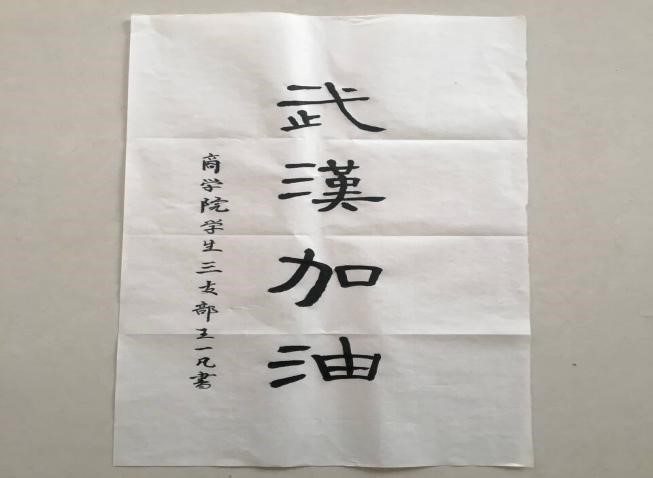 武漢加油
商学院学生三支部王一凡書